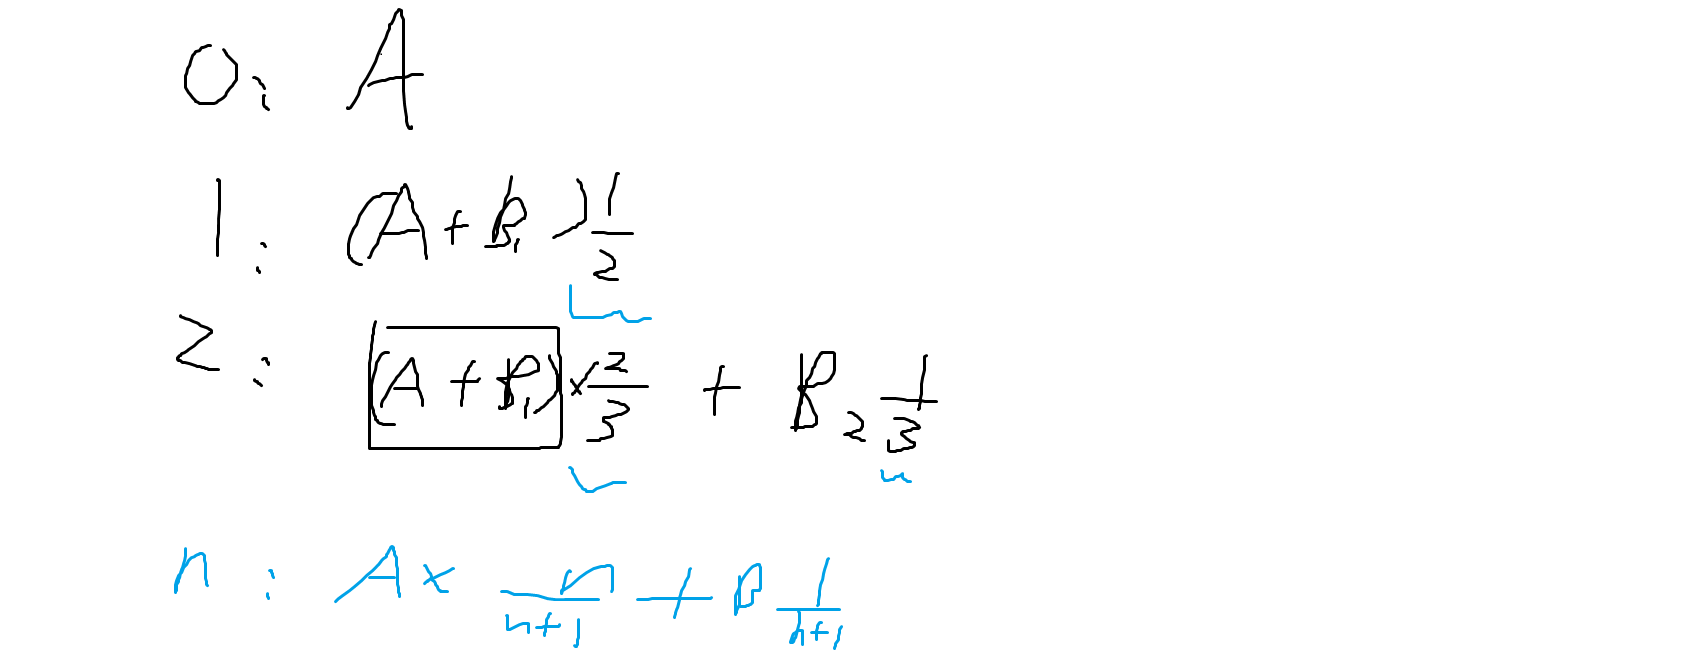 0: A
1: (A + B₁) 1/2
2: (A + B₁) × 2/3 + B₂ 1/3
n: A × n/(n+1) + B 1/(n+1)